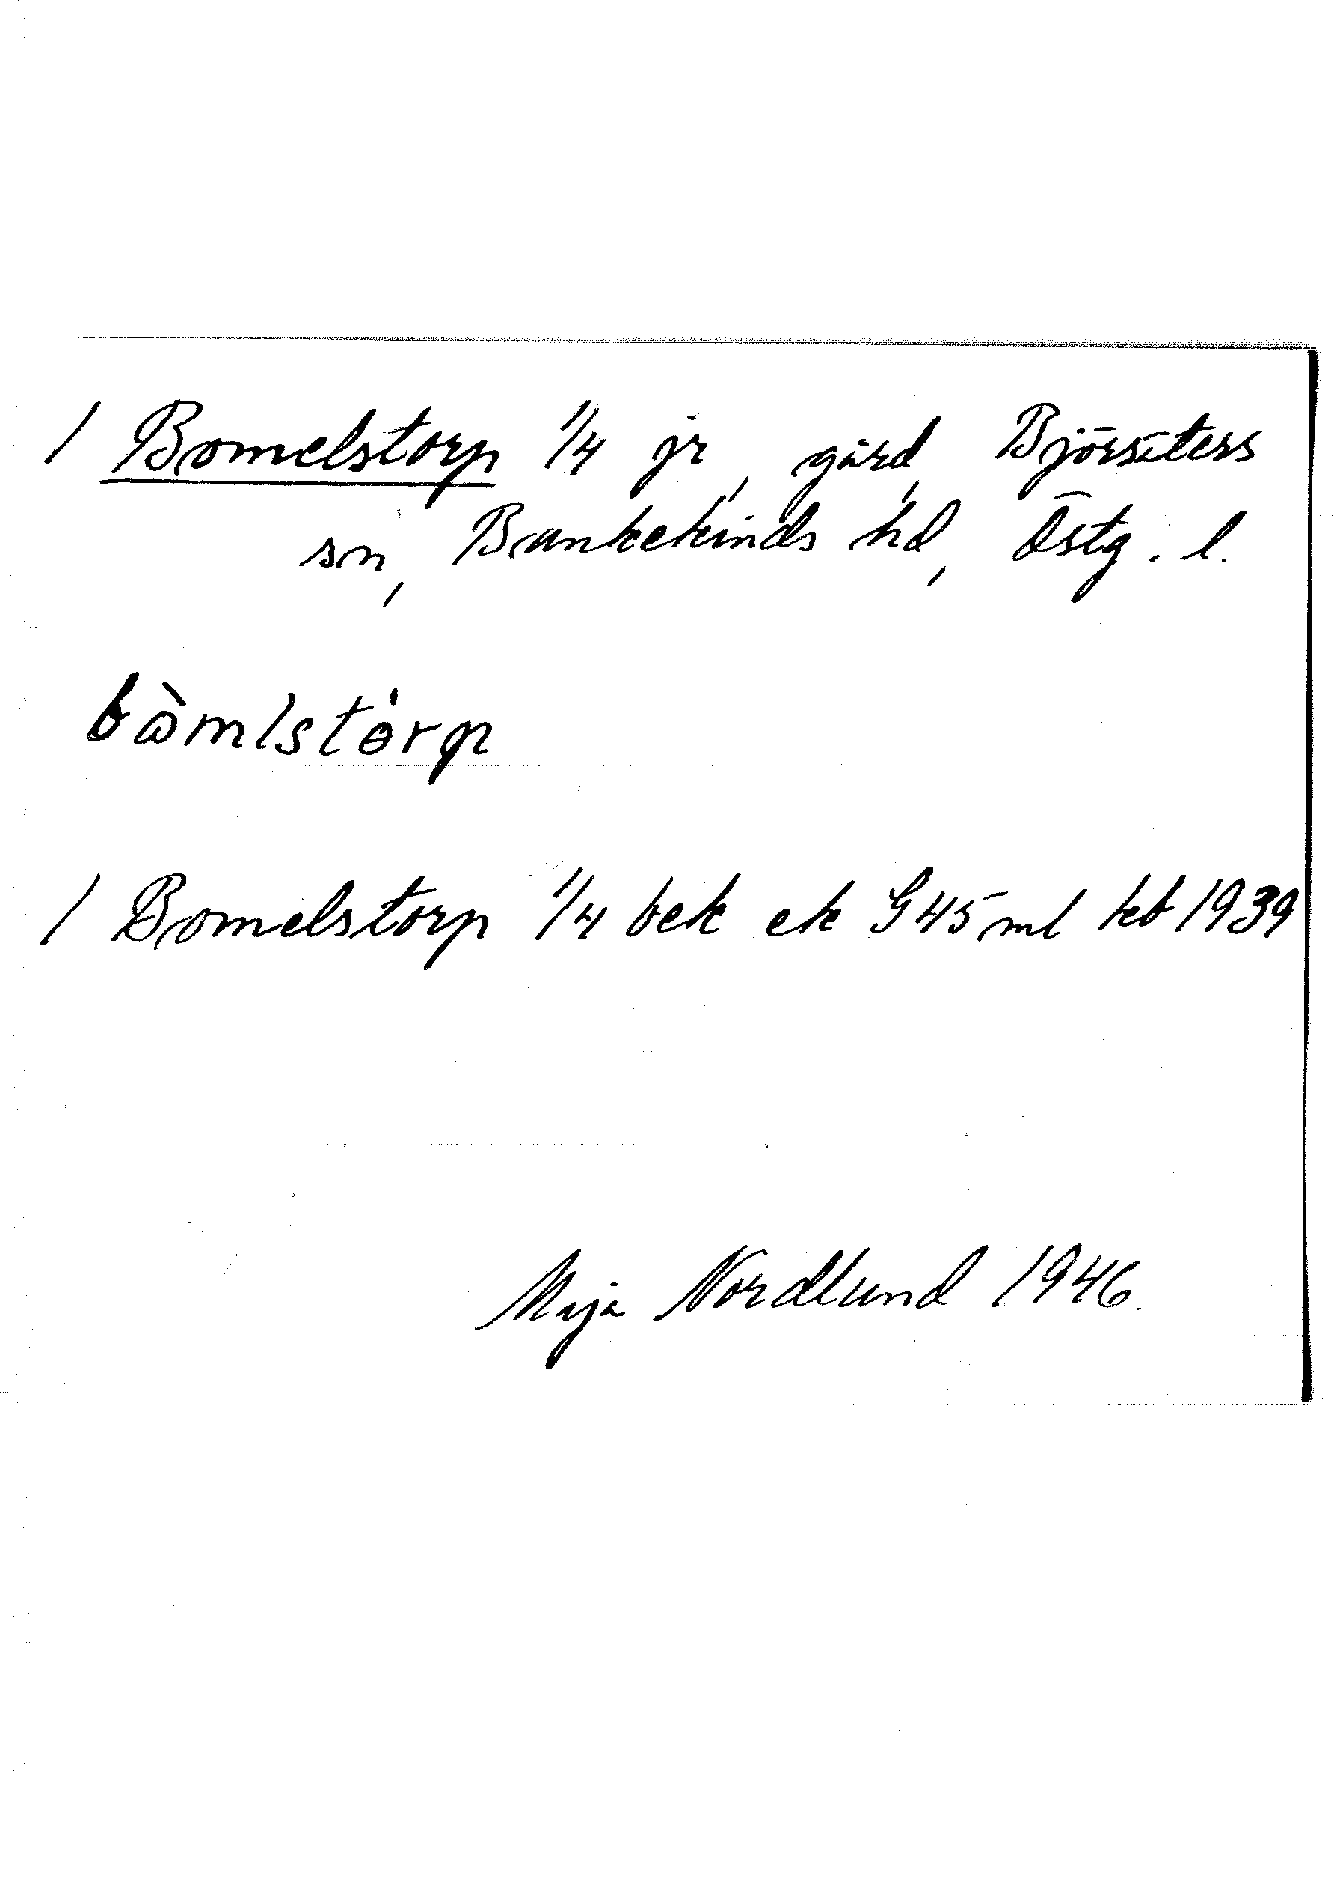 1 Bomelstorp 1/4 jr, gård, Björsäters
sn, Bankekinds hd, Östg. l.
bòmlstórp
1 Bomelstorp 1/4 bek ek G45 ml kb 1939
Maja Nordlund 1946.